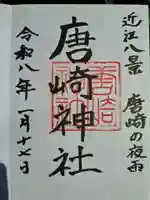 近江八景
唐崎の夜雨
唐崎神社
令和八年一月十七日